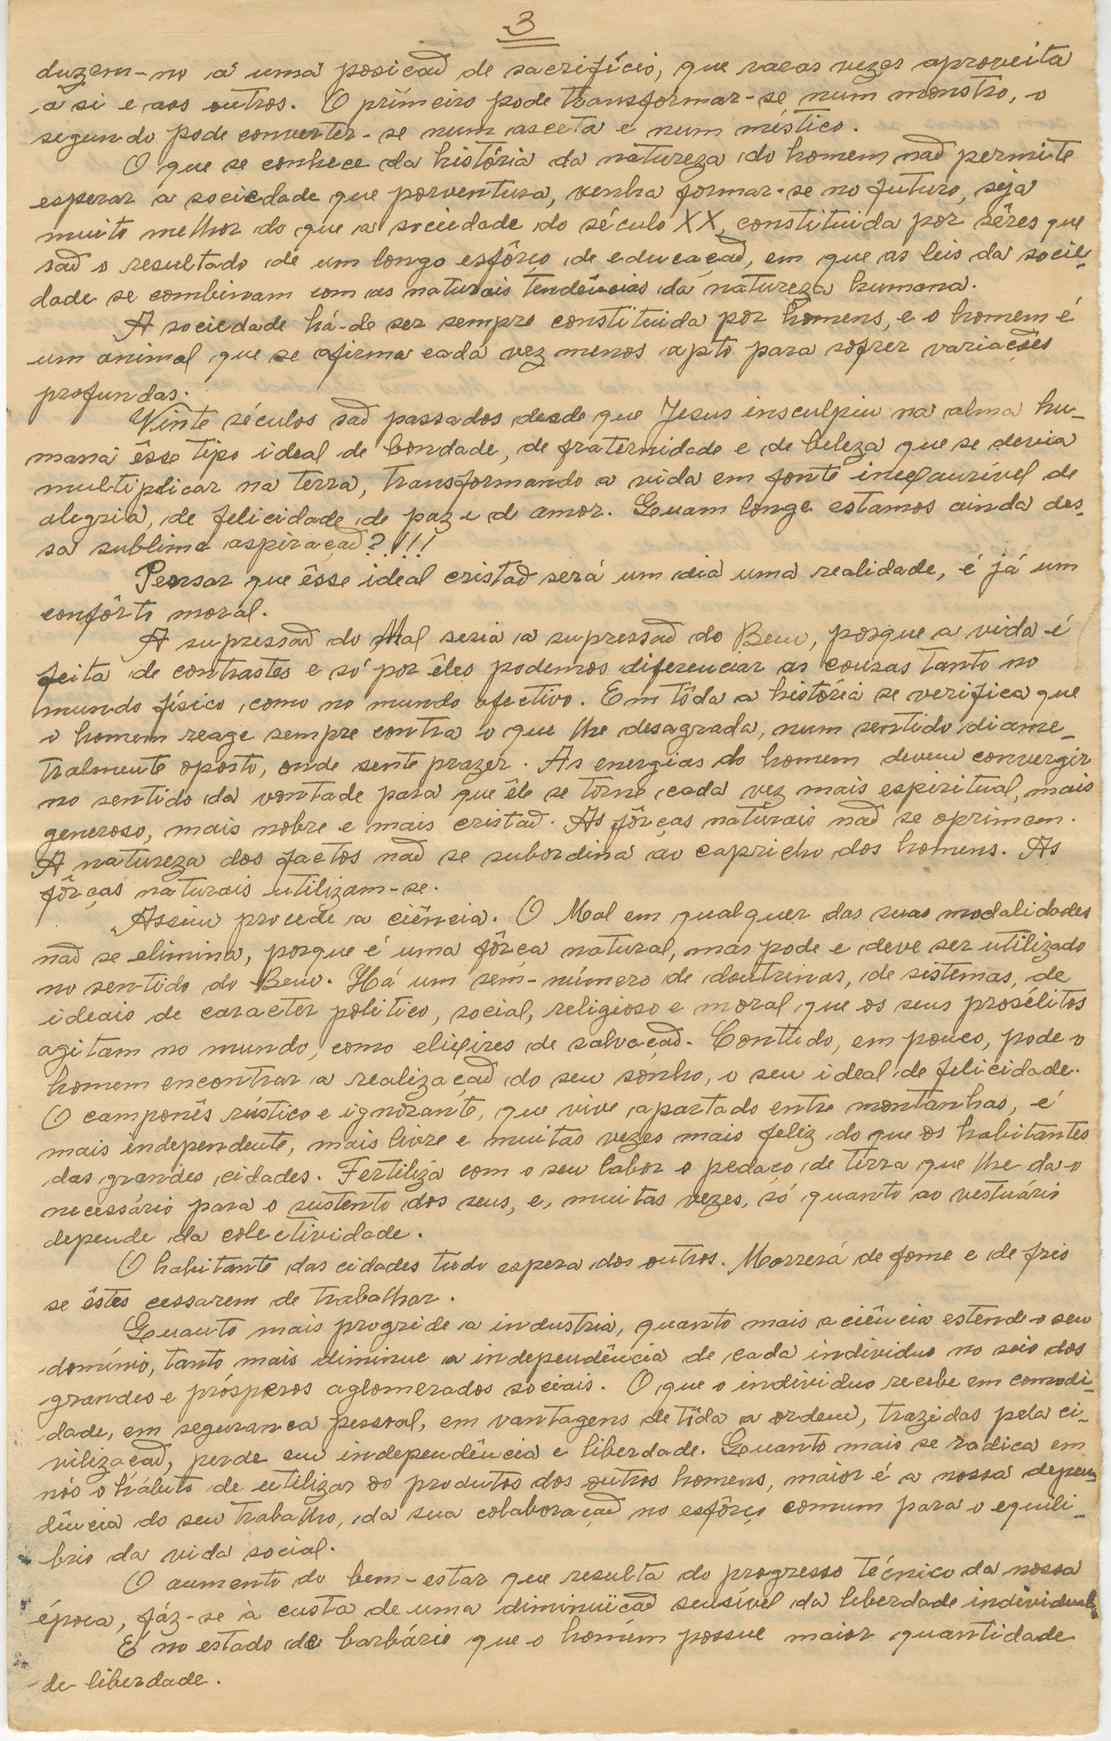 3
duzem-no a uma posicaõ de sacrifício, que raras vezes aproveita
a si e aos outros. O primeiro pode transformar-se num monstro, o
segundo pode converter-se num asceta e num místico.
O que se conhece da história da natureza do homem naõ permite
esperar a sociedade que porventura, venha formar-se no futuro, seja
muito melhor do que a sociedade do século XX, constituida por sêres que
saõ o resultado de um longo esfôrço de educaçaõ, em que as leis da socie-
dade se combinam com as naturais tendências da natureza humana.
A sociedade há-de ser sempre constituida por homens, e o homem é
um animal que se afirma cada vez menos apto para sofrer variações
profundas.
Vinte séculos saõ passados desde que Jesus insculpiu na alma hu-
mana êsse tipo ideal de bondade, de fraternidade e de beleza que se devia
multiplicar na terra, transformando a vida em fonte inexaurível de
alegria, de felicidade, de paz e de amor. Quam longe estamos ainda des-
sa sublime aspiraçaõ?!!!
Pensar que êsse ideal cristaõ será um dia uma realidade, é já um
confôrto moral.
A supressaõ do Mal seria a supressaõ do Bem, porque a vida é
feita de contrastes e só por êles podemos diferenciar as cousas tanto no
mundo físico, como no mundo afectivo. Em tôda a história se verifica que
o homem reage sempre contra o que lhe desagrada, num sentido diame-
tralmente oposto, onde sente prazer. As energias do homem devem convergir
no sentido da vontade para que êle se torne cada vez mais espiritual, mais
generoso, mais nobre e mais cristaõ. As fôrças naturais naõ se oprimem.
A natureza dos factos naõ se subordina ao capricho dos homens. As
fôrças naturais utilizam-se.
Assim procede a ciência. O Mal em qualquer das suas modalidades
naõ se elimina, porque é uma fôrça natural, mas pode e deve ser utilizado
no sentido do Bem. Há um sem-número de doutrinas, de sistemas, de
ideais de caracter politico, social, religioso e moral que os seus prosélitos
agitam no mundo, como elixires de salvaçaõ. Contudo, em pouco, pode o
homem encontrar a realizaçaõ do seu sonho, o seu ideal de felicidade.
O camponês rústico e ignorante, que vive apartado entre montanhas, é
mais independente, mais livre e muitas vezes mais feliz do que os habitantes
das grandes cidades. Fertiliza com o seu labor o pedaço de terra que lhe da o
necessário para o sustento dos seus, e, muitas vezes, só quanto ao vestuário
depende da colectividade.
O habitante das cidades tudo espera dos outros. Morrerá de fome e de frio
se êstes cessarem de trabalhar.
Quanto mais progride a industria, quanto mais a ciência estende o seu
domínio, tanto mais diminue a independência de cada individuo no seio dos
grandes e prósperos aglomerados sociais. O que o individuo recebe em comodi-
dade, em seguranca pessoal, em vantagens de tôda a ordem, trazidas pela ci-
vilizaçaõ, perde em independência e liberdade. Quanto mais se radica em
nós o hábito de utilizar os produtos dos outros homens, maior é a nossa depen-
dência do seu trabalho, da sua colaboraçaõ no esfôrço comum para o equili-
brio da vida social.
O aumento do bem-estar que resulta do progresso técnico da nossa
época, fáz-se à custa de uma diminuïçaõ sensível da liberdade individual.
É no estado de barbárie que o homem possue maior quantidade
de liberdade.